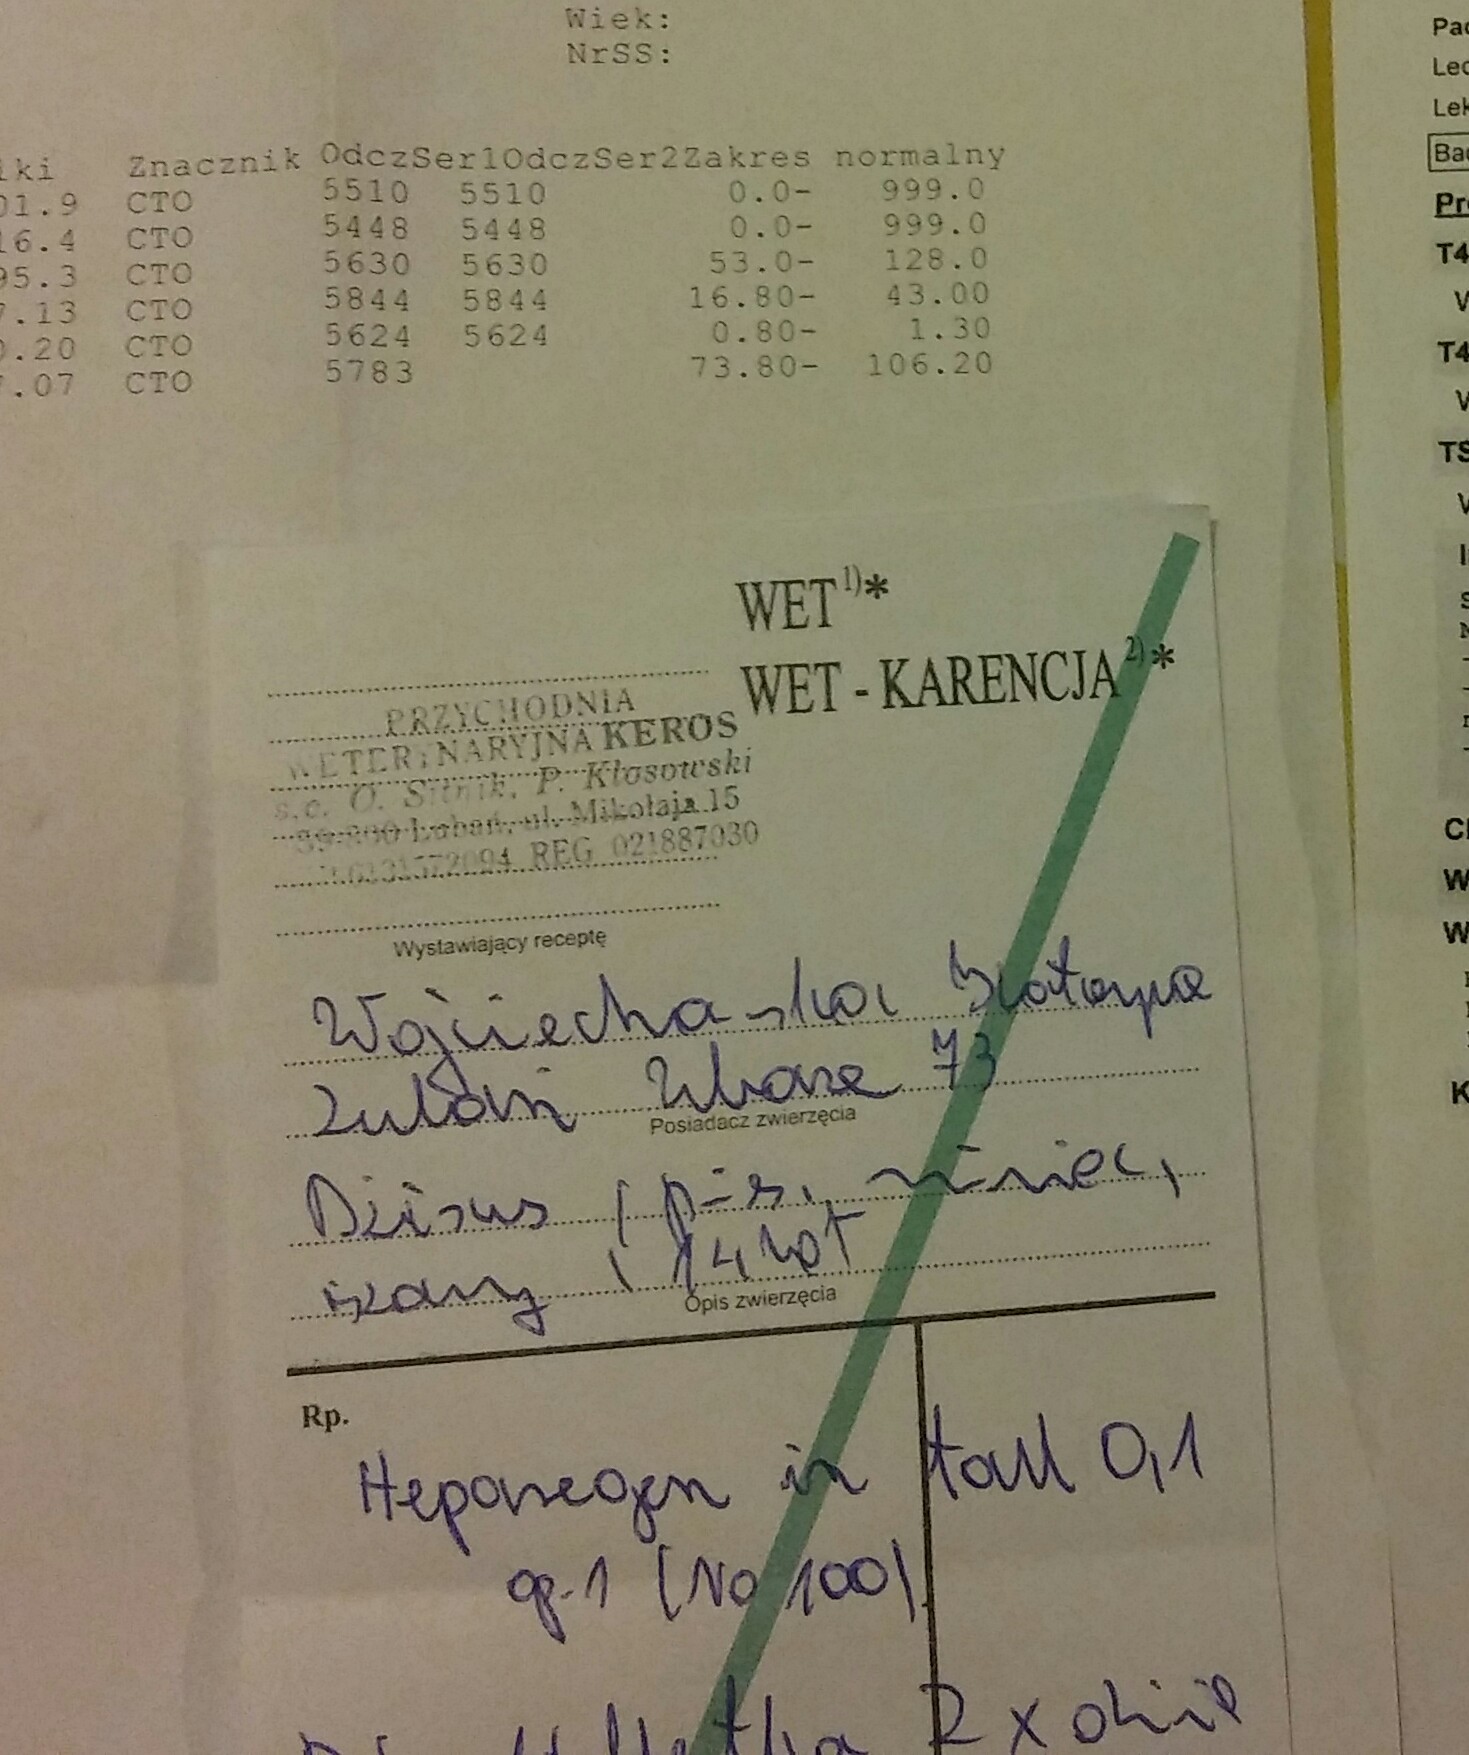 Wiek:
NrSS:
iki Znacznik OdczSer1OdczSer2Zakres normalny
01.9 CTO 5510 5510 0.0- 999.0
16.4 CTO 5448 5448 0.0- 999.0
95.3 CTO 5630 5630 53.0- 128.0
7.13 CTO 5844 5844 16.80- 43.00
0.20 CTO 5624 5624 0.80- 1.30
7.07 CTO 5783 73.80- 106.20
WET 1)*
WET - KARENCJA 2)*
PRZYCHODNIA
WETERYNARYJNA KEROS
s.c. O. Sitnik, P. Kłosowski
59-800 Lubań, ul. Mikołaja 15
6131572094 REG 021887030
Wystawiający receptę
Wojciechowska
Lubań 73
Posiadacz zwierzęcia
Dżizus, pies, miniec,
14 lat
Opis zwierzęcia
Rp.
Heparegen in tabl 0,1
op. 1 (No 100)
2 x dziennie
T4
T4
TS
K